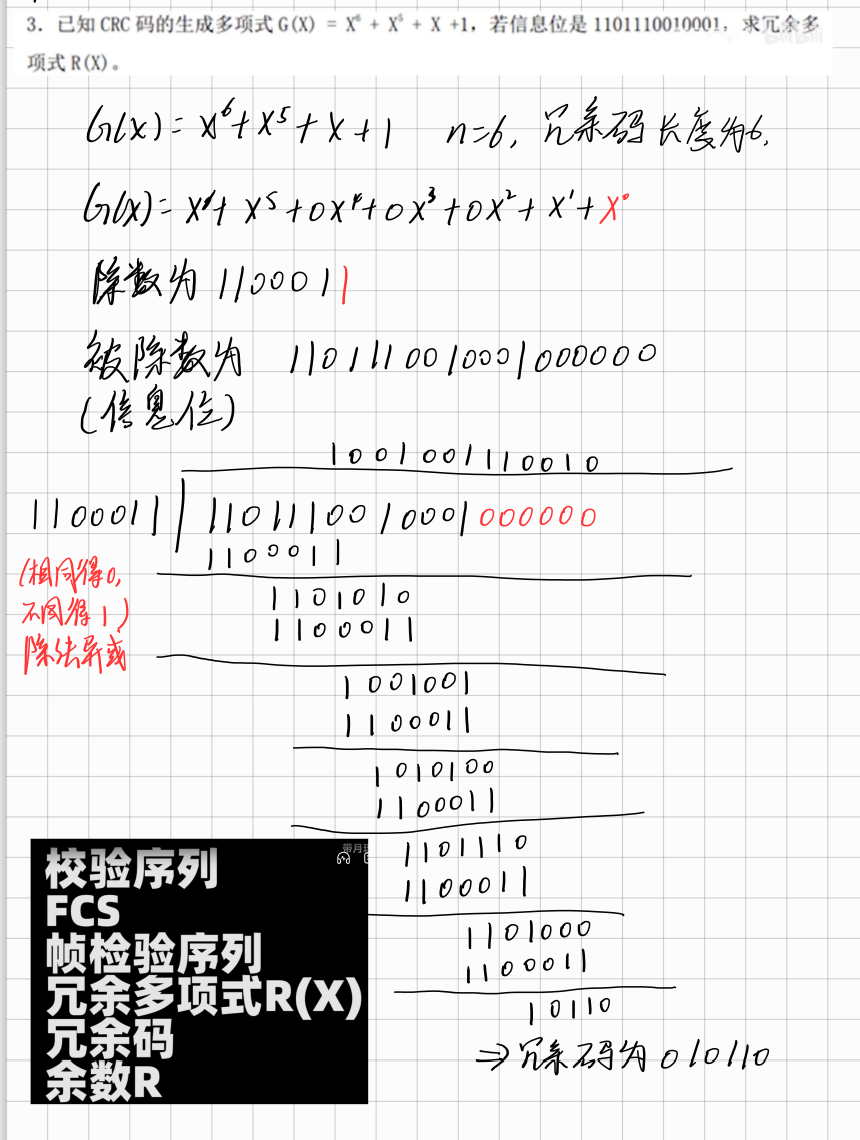 3. 已知 CRC 码的生成多项式 G(X) = X⁶ + X⁵ + X +1，若信息位是 1101110010001，求冗余多
项式 R(X)。
G(x)=x⁶+x⁵+x+1 n=6, 冗余码长度为6,
G(x)=x⁶+x⁵+0x⁴+0x³+0x²+x¹+x⁰
除数为 1100011
被除数为 1101110010001000000
(信息位)
1001001110010
1100011 1101110010001000000
1100011
(相同得0,
不同得1)
除法异或
1101010
1100011
1001001
1100011
1010100
1100011
1101110
1100011
1101000
1100011
10110
⇒冗余码为 010110
校验序列
FCS
帧检验序列
冗余多项式R(X)
冗余码
余数R